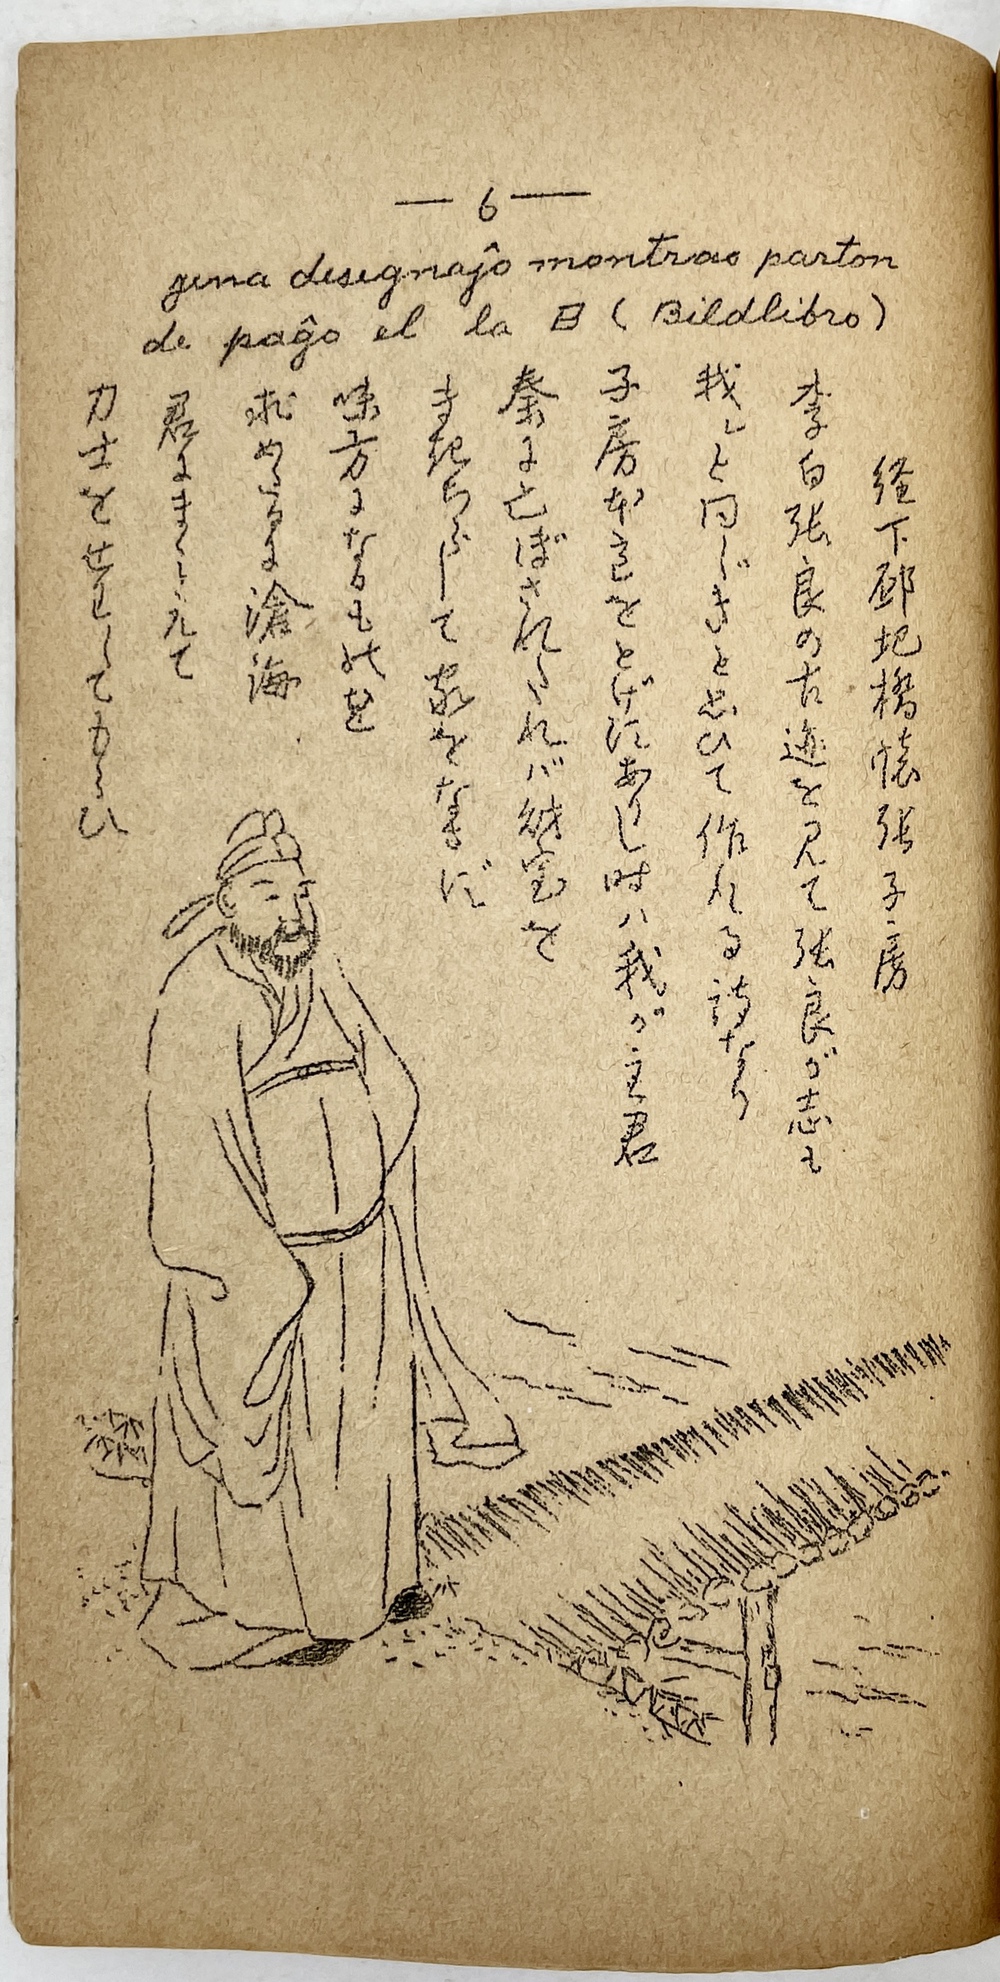 — 6 —
desegnaĵo montras parton
de paĝo el la B (Bildlibro)
経下邳圯橋懐張子房
李白張良の古迹を見て張良が志も
我しと同じきと思ひて作れる詩なり
子房本意をとげにありし時ハ我が主君
秦に亡ぼされたれバ財宝を
まきちらして家をなさず
味方になるものを
求めるに滄海
君にまミえて
力士をせわしてもらひ